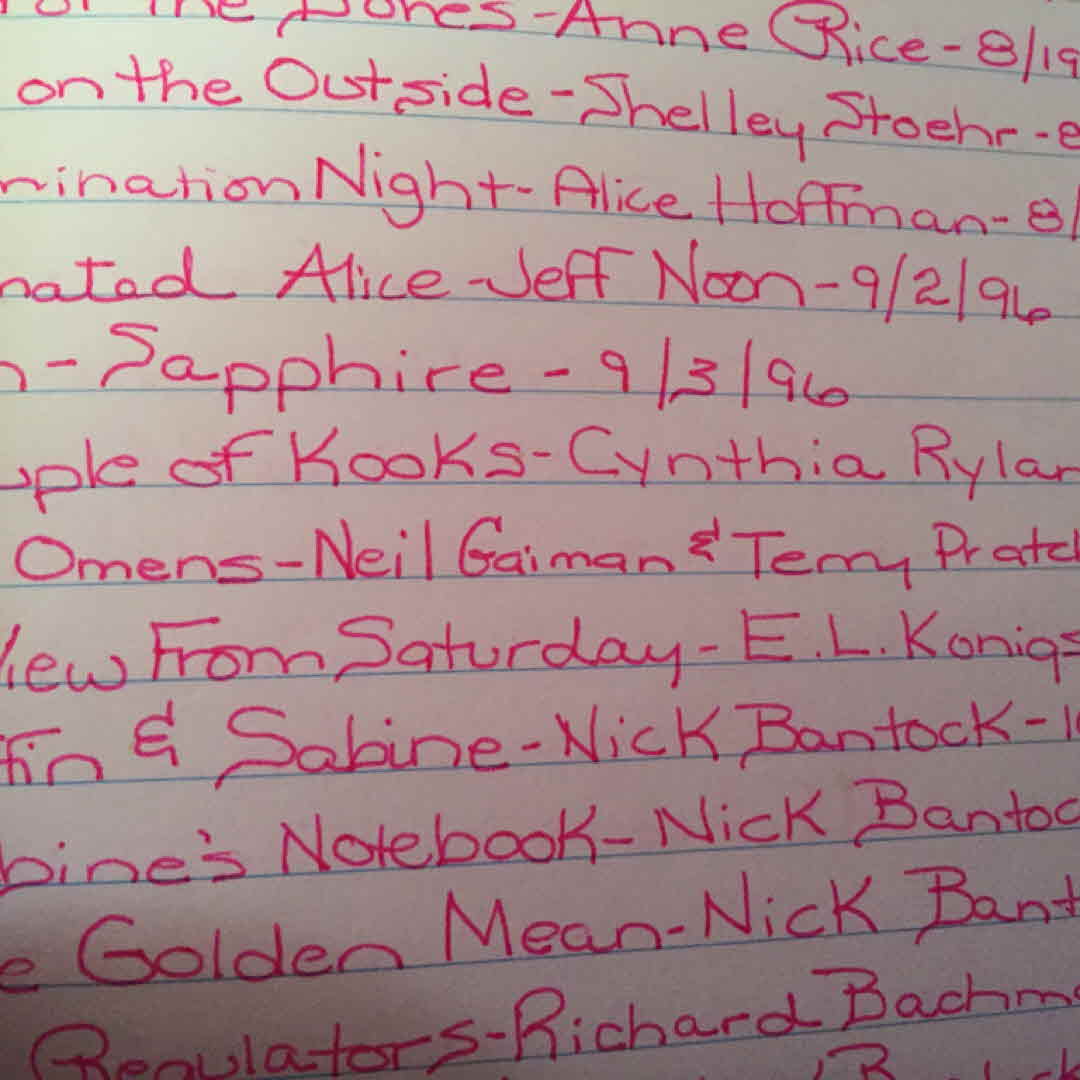 the Bones-Anne Rice-8/19
on the Outside-Shelley Stoehr-
mination Night-Alice Hoffman-8/
nated Alice-Jeff Noon-9/2/96
-Sapphire-9/3/96
uple of Kooks-Cynthia Rylan
Omens-Neil Gaiman & Terry Pratch
View From Saturday-E.L. Konigs
fin & Sabine-Nick Bantock-10
bine's Notebook-Nick Bantoc
e Golden Mean-Nick Bant
Regulators-Richard Bachma